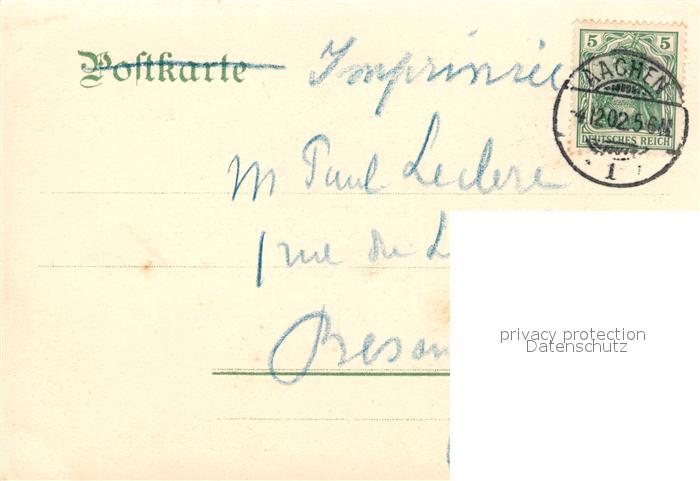 Postkarte Imprimée
5 5
AACHEN
-4.12.02.5-6N
DEUTSCHES REICH
1
M Paul Leclere
1 rue de L
Besan
privacy protection
Datenschutz